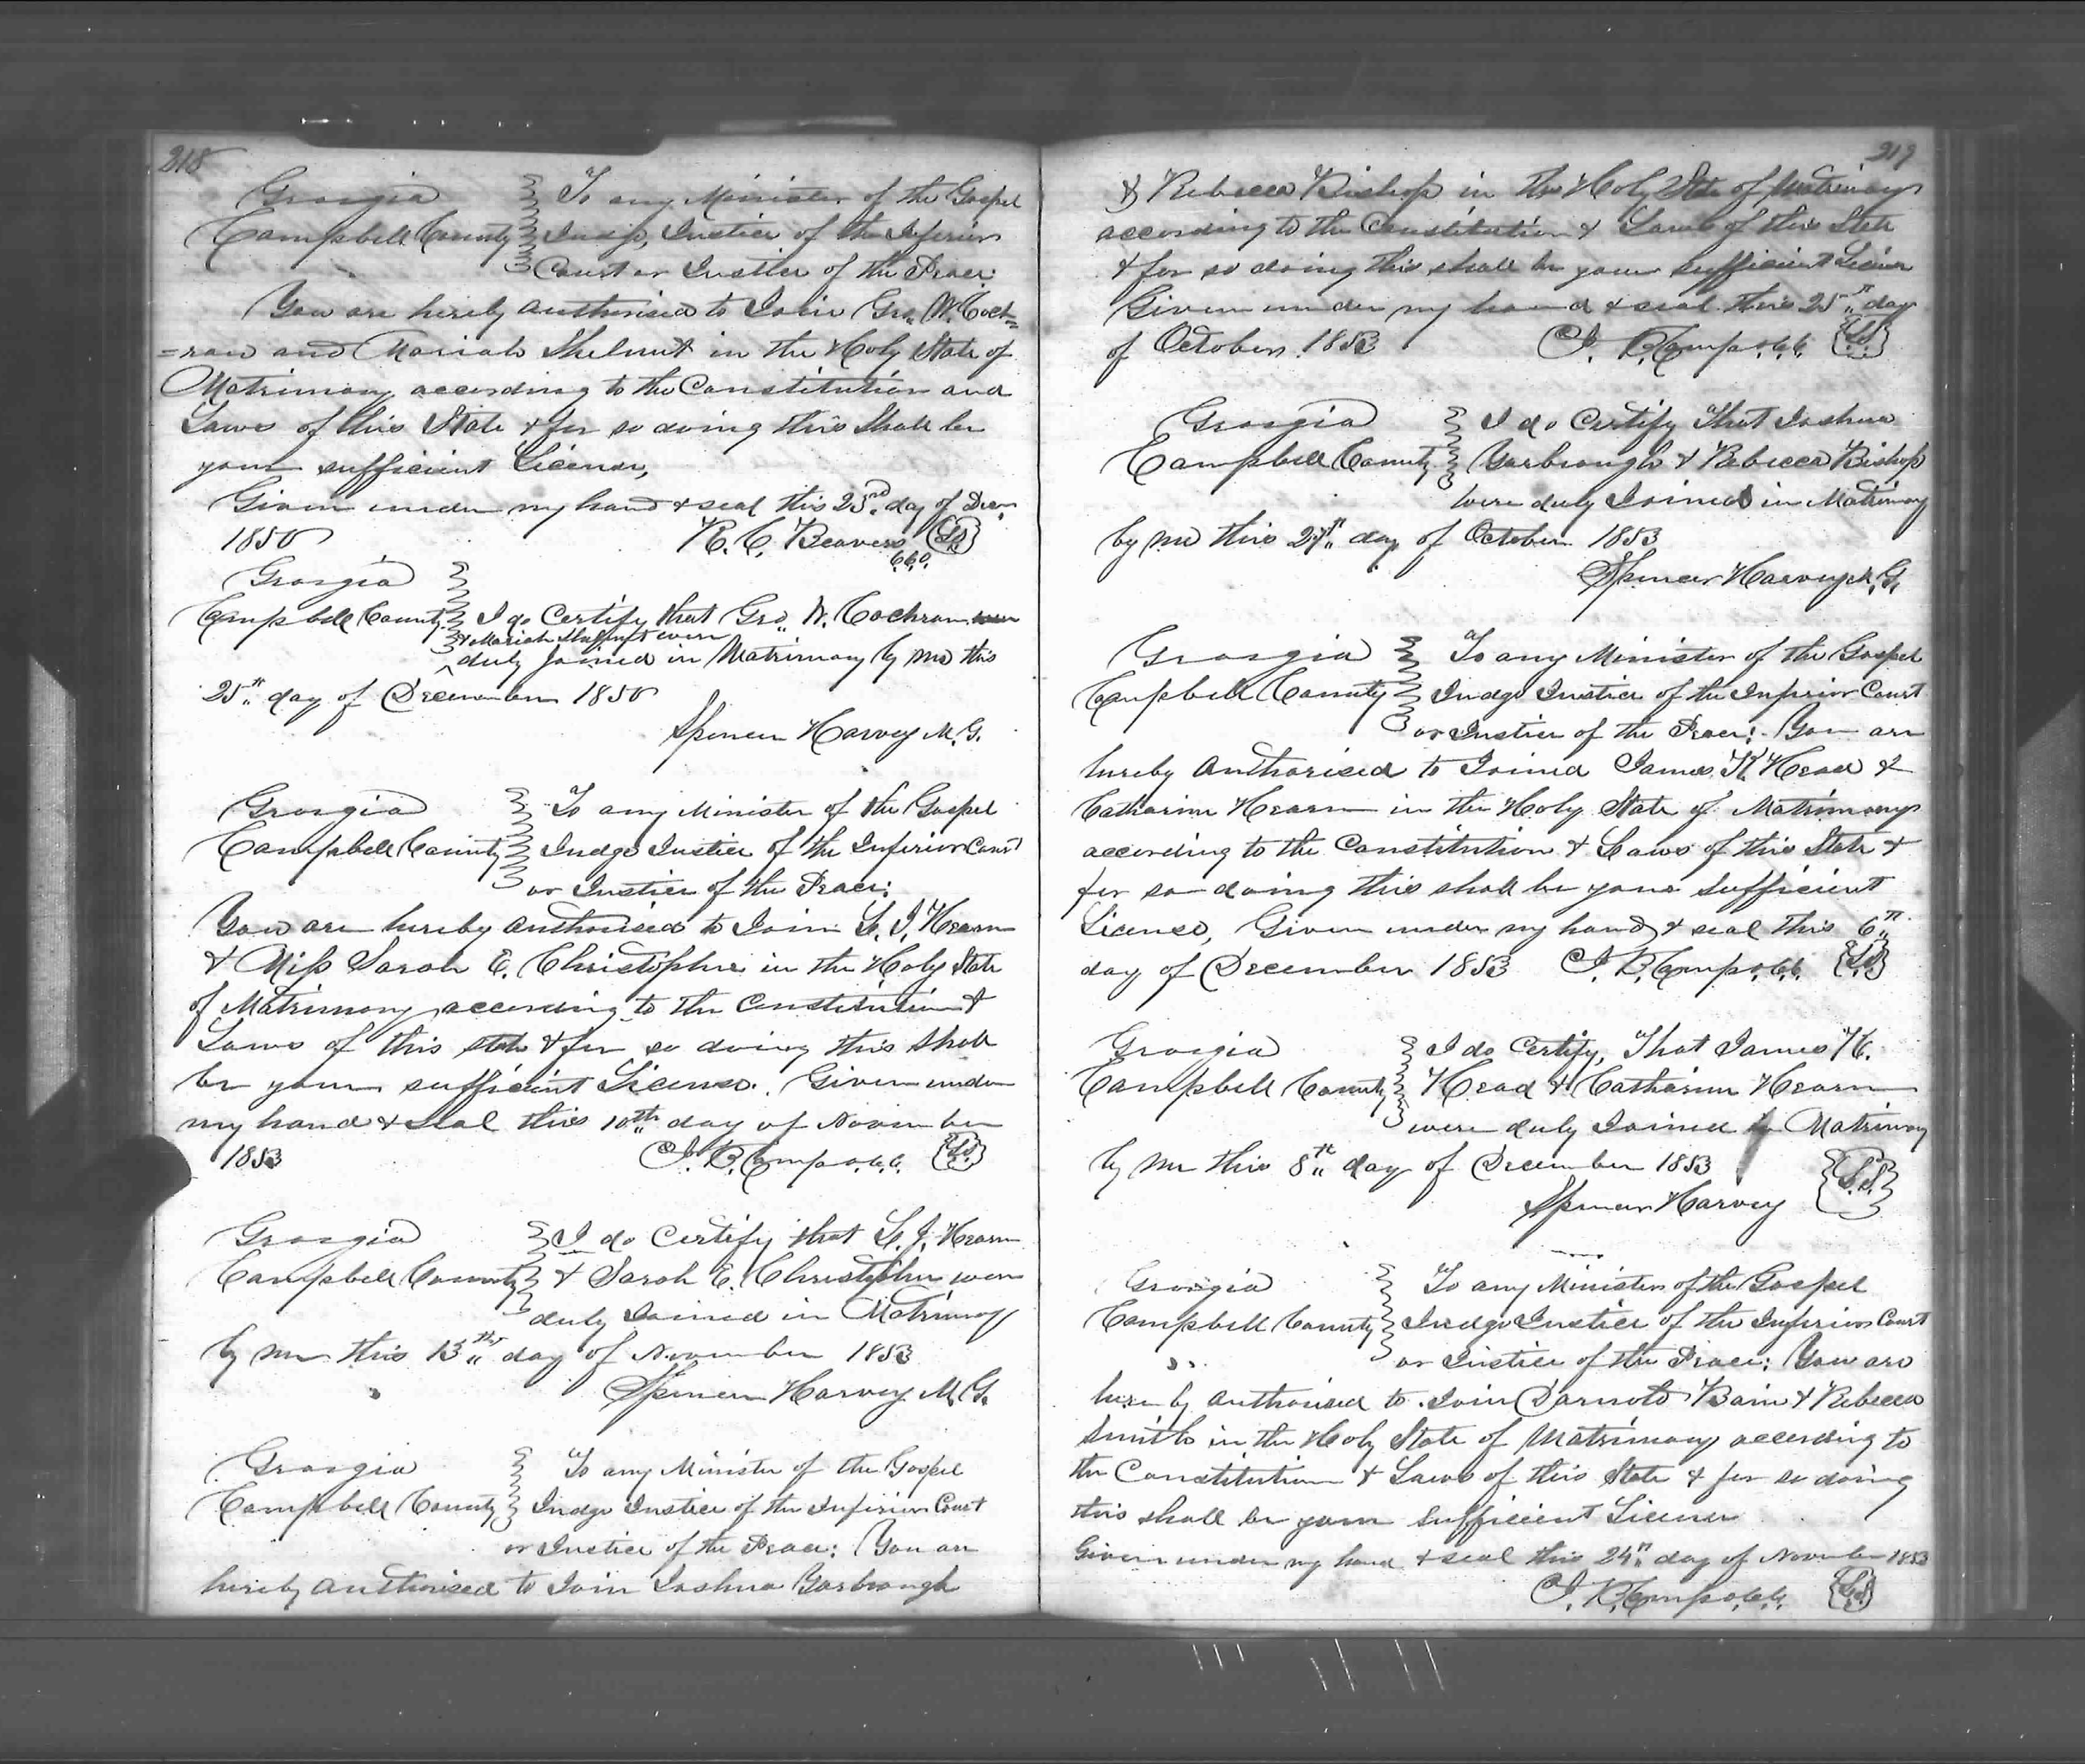 218
Georgia
Campbell County
To any Minister of the Gospel
Judge, Justice of the Inferior
Court or Justice of the Peace:
You are hereby authorised to Join Geo. W. Coch=
=ran and Mariah Shelnut in the Holy State of
Matrimony according to the Constitution and
Laws of this State & for so doing this Shall be
your sufficient License,
Given under my hand & seal this 23rd day of Decr
1850 R. C. Beavers LS
c.c.o.
Georgia
Campbell County I do Certify that Geo. W. Cochran
& Mariah Shelnut were
duly Joined in Matrimony by me this
25th day of December 1850
Spencer Harvey M.G.
Georgia
Campbell County
To any Minister of the Gospel
Judge Justice of the Inferior Court
or Justice of the Peace:
You are hereby authorised to Join L. J. Hearn
& Miss Sarah E. Christopher in the Holy State
of Matrimony according to the Constitution &
Laws of this state & for so doing this shall
be your sufficient License. Given under
my hand & seal this 10th day of November
1853 J. B. Camp c.c.o. LS
Georgia
Campbell County
I do Certify that L. J. Hearn
& Sarah E. Christopher were
duly Joined in Matrimony
by me this 13th day of November 1853
Spencer Harvey M.G.
Georgia
Campbell County
To any Minister of the Gospel
Judge Justice of the Inferior Court
or Justice of the Peace: You are
hereby authorised to Join Joshua Yarbrough
219
& Rebecca Bishop in the Holy State of Matrimony
according to the Constitution & Laws of this State
& for so doing this shall be your sufficient License
Given under my hand & seal this 25th day
of October 1853 J. B. Camp c.c.o. LS
Georgia
Campbell County
I do Certify That Joshua
Yarbrough & Rebecca Bishop
were duly Joined in Matrimony
by me this 27th day of October 1853
Spencer Harvey M.G.
Georgia
Campbell County
To any Minister of the Gospel
Judge Justice of the Inferior Court
or Justice of the Peace: You are
hereby authorised to Joined James K Head &
Catharine Hearn in the Holy State of Matrimony
according to the Constitution & Laws of this State &
for so doing this shall be your sufficient
License, Given under my hand & seal this 6th
day of December 1853 J. B. Camp c.c.o. LS
Georgia
Campbell County
I do Certify, That James K.
Head & Catharine Hearn
were duly Joined in Matrimony
by me this 8th day of December 1853
Spencer Harvey L.S.
Georgia
Campbell County
To any Minister of the Gospel
Judge Justice of the Inferior Court
or Justice of the Peace: You are
here by authorised to Join Darnold Bain & Rebecca
Smith in the Holy State of Matrimony according to
the Constitution & Laws of this State & for so doing
this shall be your sufficient License
Given under my hand & seal this 24th day of November 1853
J. B. Camp c.c.o. LS